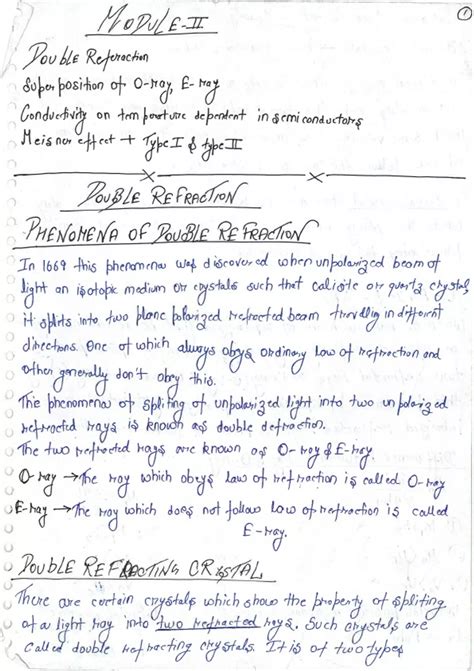 1
MODULE-II
Double Referaction
Superposition of O-ray, E-ray
Conductivity on temperature dependent in semiconductors
Meisner effect + Type I & type II
DOUBLE REFRACTION
PHENOMENA OF DOUBLE REFRACTION
In 1669 this phenomena was discovered when unpolarized beam of
light an isotopic medium or crystals such that calicite or quartz crystal
it splits into two plane polarized refracted beam travelling in different
directions. One of which always obeys ordinary law of refraction and
other generally don't obey this.
The phenomena of spliting of unpolarized light into two unpolarized
refracted rays is known as double defraction.
The two refracted rays are known as O-ray & E-ray
O-ray → The ray which obeys law of refraction is called O-ray
E-ray → The ray which does not follow law of refraction is called
E-ray.
DOUBLE REFRACTING CRYSTAL
There are certain crystals which show the property of spliting
of a light ray into two refracted rays. Such crystals are
called double refracting crystals. It is of two types